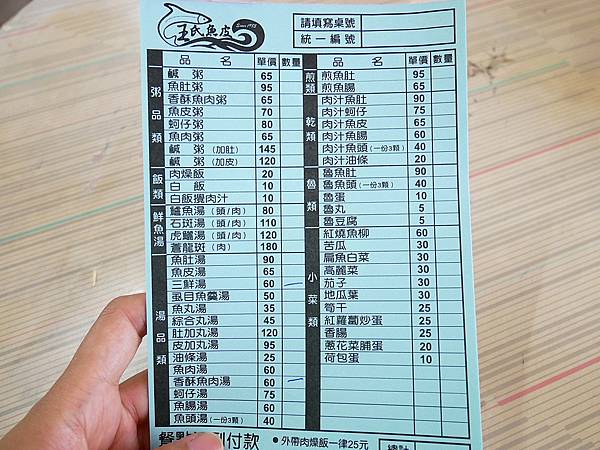 王氏魚皮
Since 1973
請填寫桌號
統一編號
品 名 單價 數量
粥品類
鹹 粥 65
魚肚粥 95
香酥魚肉粥 65
魚皮粥 70
蚵仔粥 80
魚肉粥 65
鹹 粥 (加肚) 145
鹹 粥 (加皮) 120
飯類
肉燥飯 20
白 飯 10
白飯攪肉汁 10
鮮魚湯
鱸魚湯 (頭/肉) 80
石斑湯 (頭/肉) 110
虎鱺湯 (頭/肉) 120
蒼龍斑 (肉) 180
湯品類
魚肚湯 90
魚皮湯 65
三鮮湯 60
虱目魚羹湯 50
魚丸湯 35
綜合丸湯 45
肚加丸湯 120
皮加丸湯 95
油條湯 25
魚肉湯 60
香酥魚肉湯 60
蚵仔湯 75
魚腸湯 60
魚頭湯 (一份3顆) 40
品 名 單價 數量
煎類
煎魚肚 95
煎魚腸 65
乾類
肉汁魚肚 90
肉汁蚵仔 75
肉汁魚皮 65
肉汁魚腸 60
肉汁魚頭 (一份3顆) 40
肉汁油條 20
魯類
魯魚肚 90
魯魚頭 (一份3顆) 40
魯蛋 10
魯丸 5
魯豆腐 5
小菜類
紅燒魚柳 60
苦瓜 30
扁魚白菜 30
高麗菜 30
茄子 30
地瓜葉 30
筍干 25
紅蘿蔔炒蛋 25
香腸 25
蔥花菜脯蛋 20
荷包蛋 10
餐點 付款
•外帶肉燥飯一律25元
總計